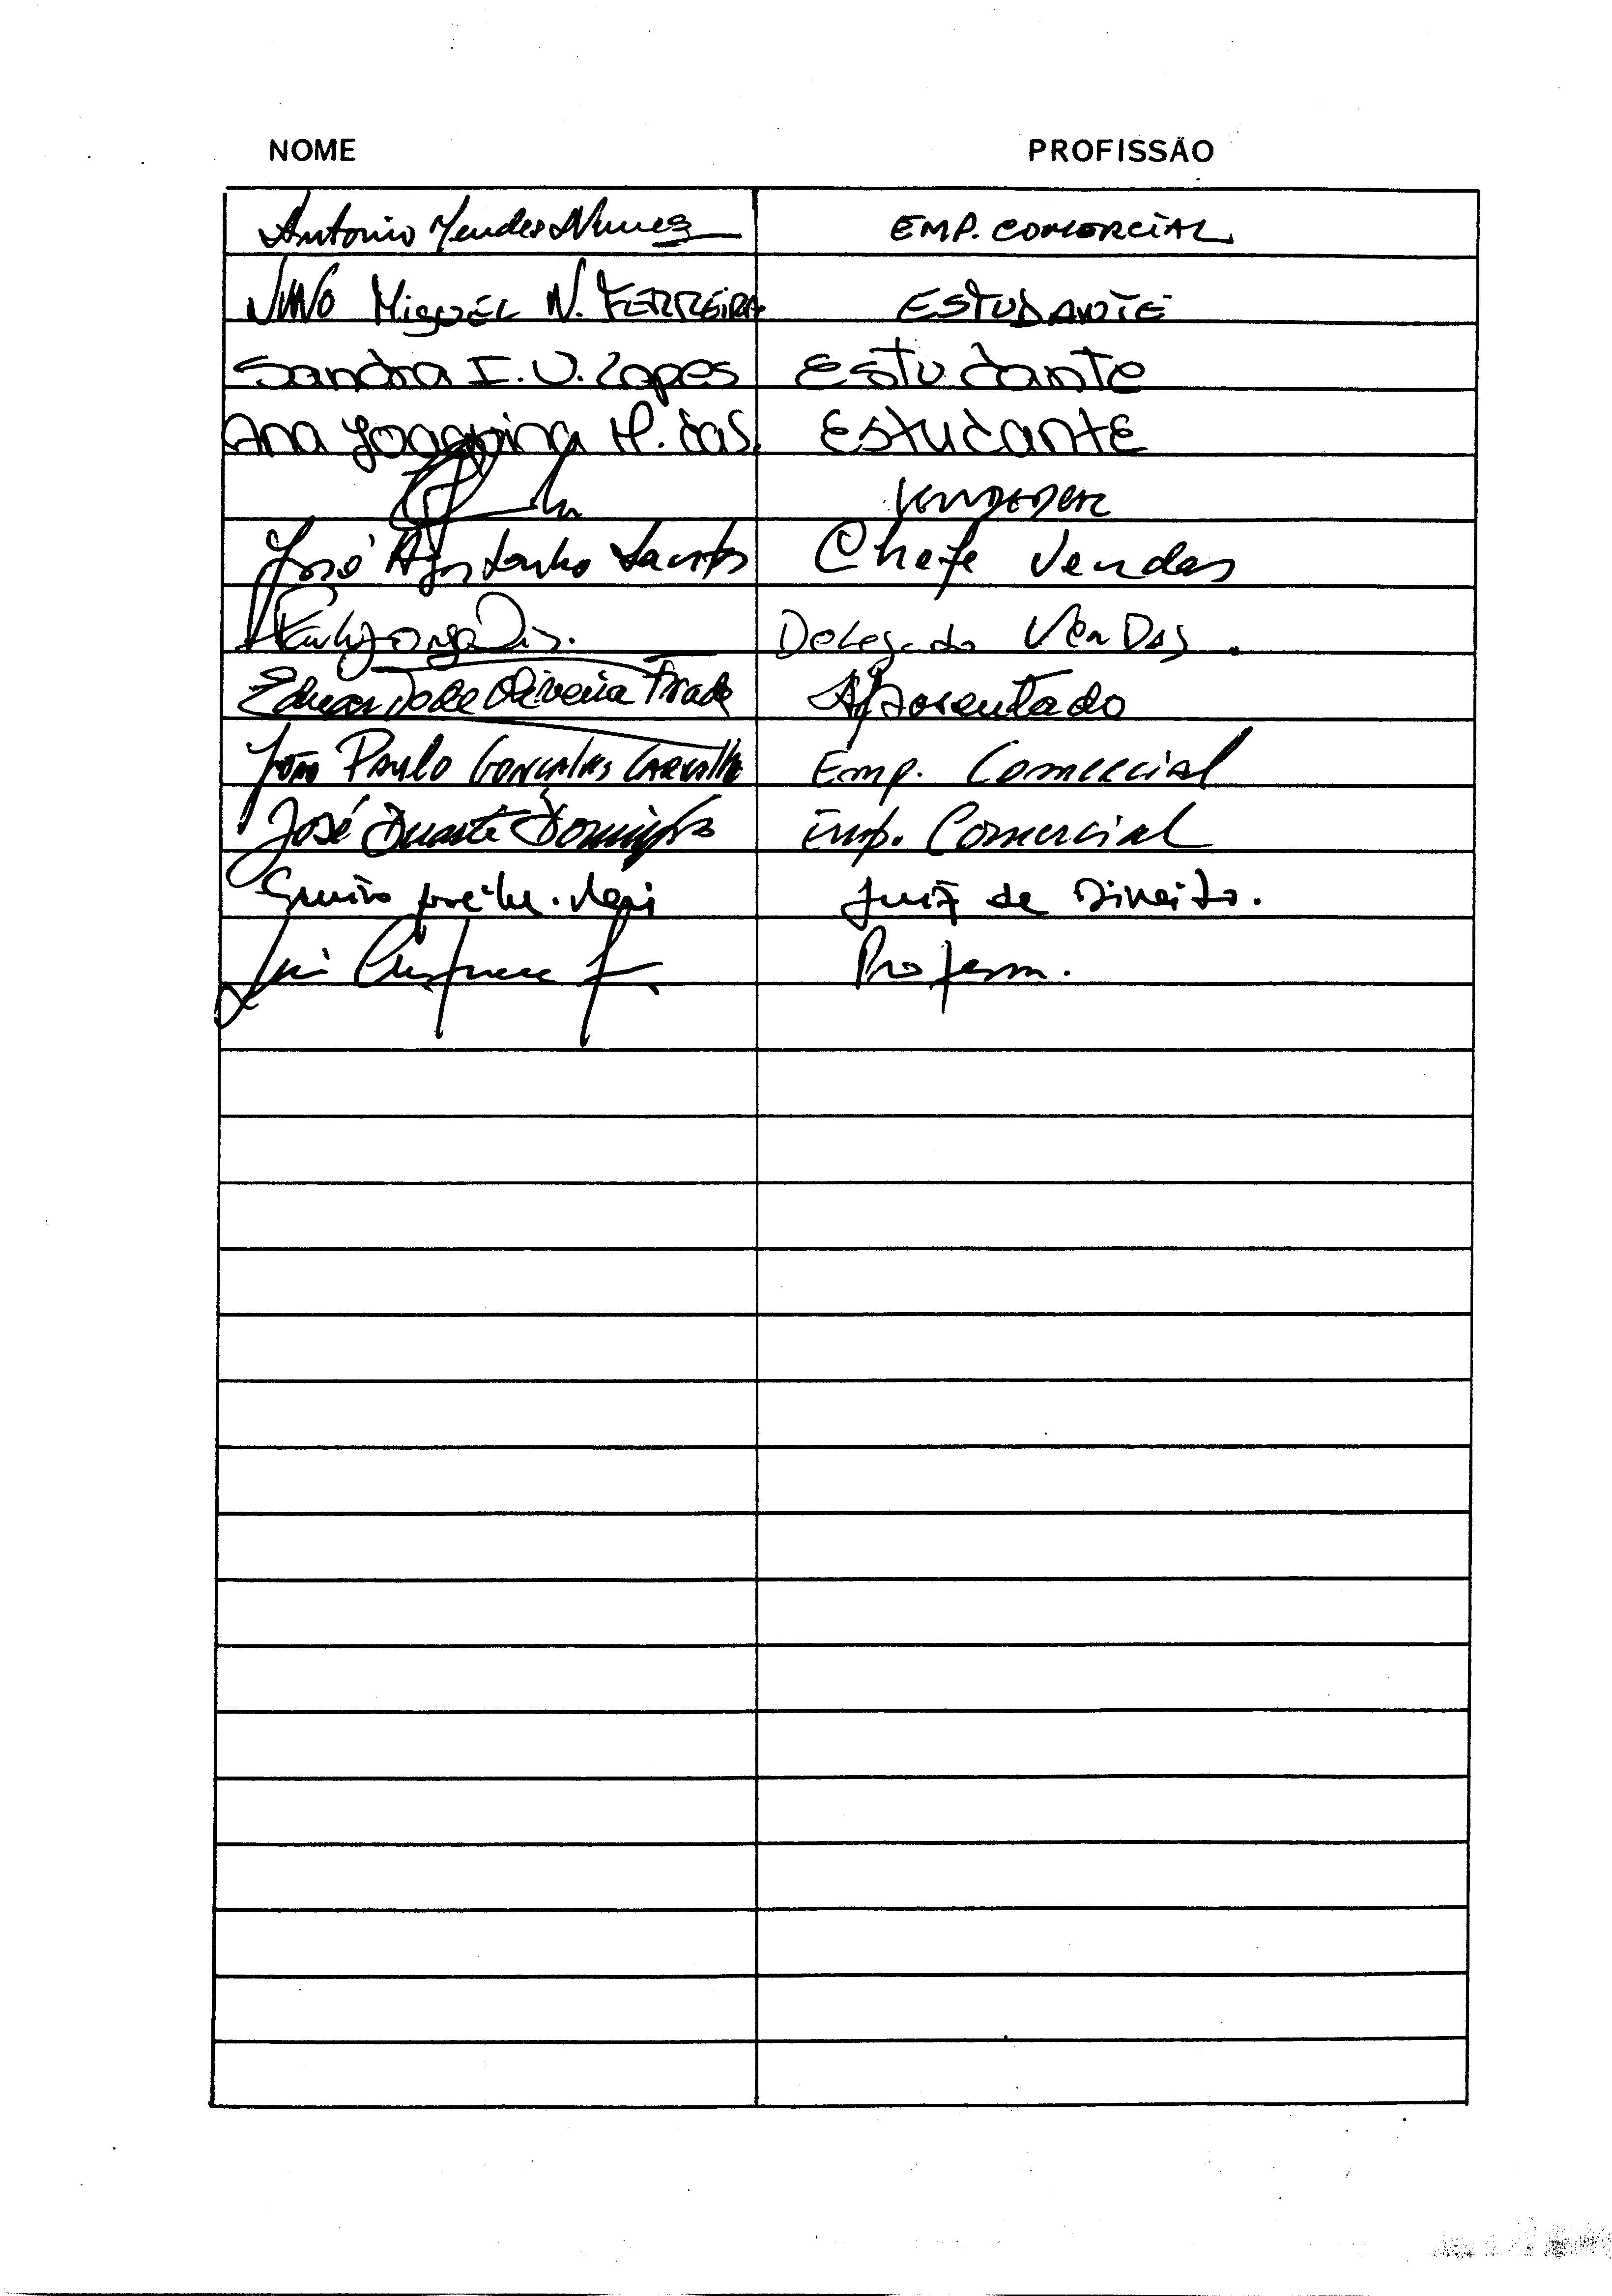 NOME PROFISSÃO
Antonio Mendes Nunes EMP. COMERCIAL
NUNO MIGUEL N. FERREIRA ESTUDANTE
Sandra I. V. Lopes Estudante
Ana Joaquina M. Estudante
VENDEDOR
José Agostinho Santos Chefe Vendas
Delegado Vendas.
Eduardo de Oliveira Frade Aposentado
João Paulo Gonçalves Carvalho Emp. Comercial
José Duarte Domingos Emp. Comercial
Juiz de Direito.
Professor.